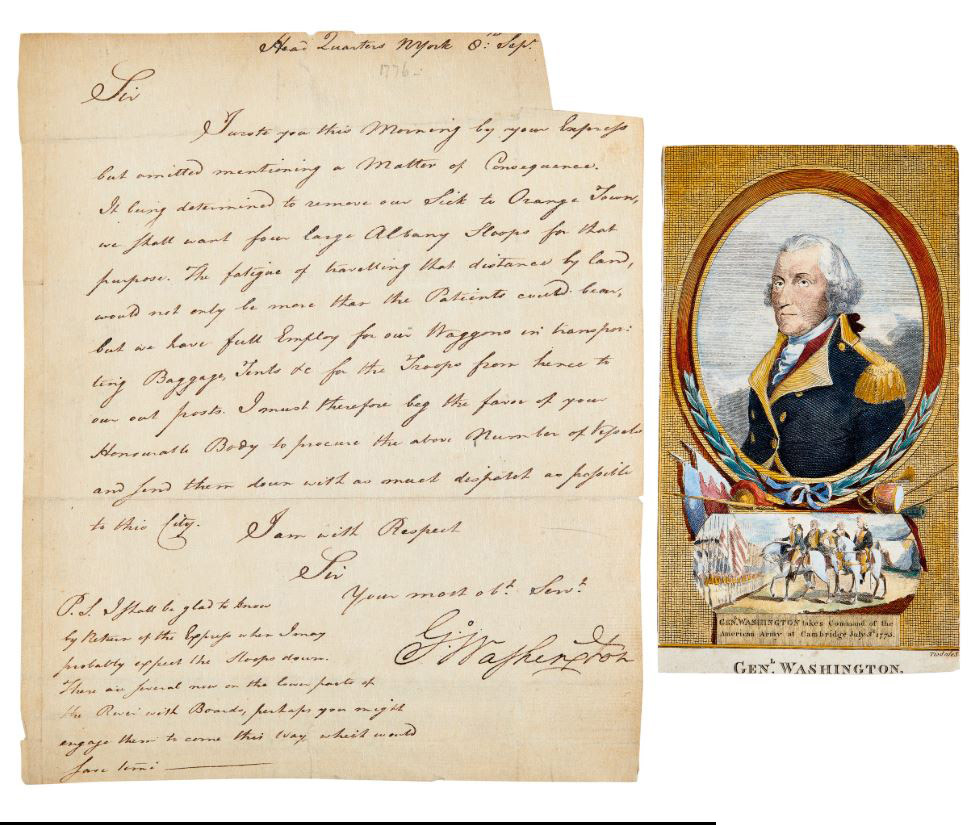 Head Quarters NYork 8.th Sepr.
1776
Sir
I wrote you this Morning by your Express
but omitted mentioning a Matter of Consequence.
It being determined to remove our Sick to Orange Town,
we shall want four large Albany Sloops for that
purpose. The fatigue of travelling that distance by land,
would not only be more than the Patients could bear,
but we have full Employ for our Waggons in transpor:
ting Baggage, Tents &c for the Troops from hence to
our out posts. I must therefore beg the favor of your
Honourable Body to procure the above Number of Vessels
and send them down with as much dispatch as possible
to this City.
I am with Respect
Sir
Your most obt. Servt.
Go. Washington
P.S. I shall be glad to know
by Return of the Express when I may
probably expect the Sloops down.
There are several now on the lower parts of
the River with Boards, perhaps you might
engage them to come this Way which would
save time
GEN. WASHINGTON takes Command of the
American Army at Cambridge July 3d. 1775.
Tisdale S
GENL. WASHINGTON.